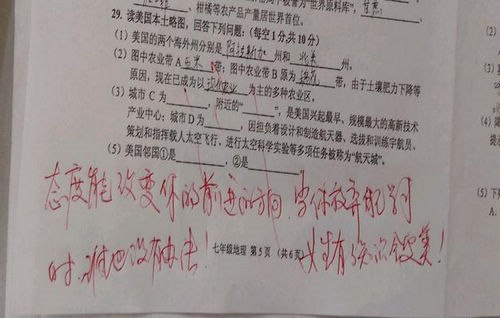 、柑橘等农产品产量居世界首位。
29. 读美国本土略图，回答下列问题：(每空1分,共10分)
(1) 美国的两个海外州分别是 阿拉斯加 州和 州
(2) 图中农业带A 玉米 带；图中农业带B原为 棉花 带，由于土壤肥力下降等
原因，现在已成为以 为主的多种农业区。
(3) 城市C为 ，附近的“ ”，是美国兴起最早、规模最大的高新技术
产业中心；城市D为 ，因担负着设计和制造航天器、选拔和训练宇航员、
策划和指挥载人太空飞行、进行太空科学实验等多项任务被称为“航天城”。
(5) 美国邻国①是 ，②是
态度能改变你的前进的方向，当你放弃的学习
时，谁也没有办法！
七年级地理 第5页 (共6页)
女生有了知识会更美！